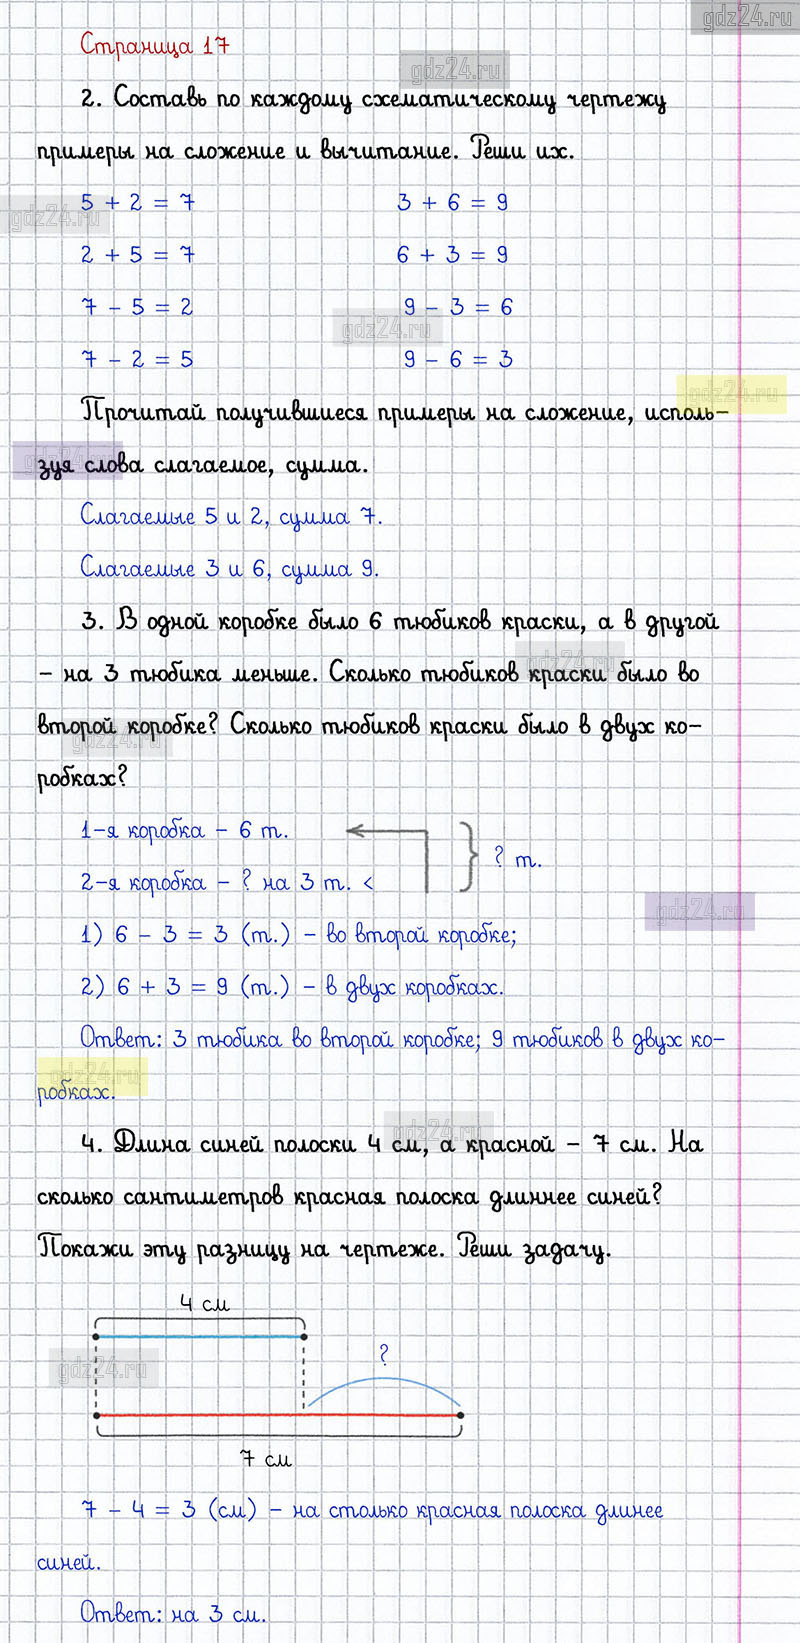 gdz24.ru
Страница 17
gdz24.ru
2. Составь по каждому схематическому чертежу
примеры на сложение и вычитание. Реши их.
5 + 2 = 7 3 + 6 = 9
gdz24.ru
2 + 5 = 7 6 + 3 = 9
7 - 5 = 2 9 - 3 = 6
gdz24.ru
7 - 2 = 5 9 - 6 = 3
gdz24.ru
Прочитай получившиеся примеры на сложение, исполь-
gdz24.ru
зуя слова слагаемое, сумма.
Слагаемые 5 и 2, сумма 7.
Слагаемые 3 и 6, сумма 9.
3. В одной коробке было 6 тюбиков краски, а в другой
gdz24.ru
- на 3 тюбика меньше. Сколько тюбиков краски было во
второй коробке? Сколько тюбиков краски было в двух ко-
gdz24.ru
робках?
1-я коробка - 6 т.
? т.
2-я коробка - ? на 3 т. <
gdz24.ru
1) 6 - 3 = 3 (т.) - во второй коробке;
2) 6 + 3 = 9 (т.) - в двух коробках.
Ответ: 3 тюбика во второй коробке; 9 тюбиков в двух ко-
gdz24.ru
робках.
gdz24.ru
4. Длина синей полоски 4 см, а красной - 7 см. На
сколько сантиметров красная полоска длиннее синей?
Покажи эту разницу на чертеже. Реши задачу.
4 см
?
gdz24.ru
7 см
7 - 4 = 3 (см) - на столько красная полоска длинее
синей.
Ответ: на 3 см.